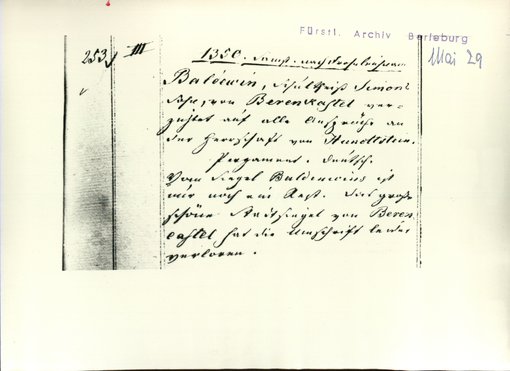 Fürstl. Archiv Berleburg
Mai 29
253, III
1350. Samst. nach Frohnleichnam
Baldewin, Schultheiß Simons
Sohn, von Berenkastel ver=
zichtet auf alle Ansprüche an
der Herrschaft von Hundtstein.
Pergament. Deutsch.
Vom Siegel Baldewins ist
nur noch ein Rest. Das große
schöne Stadtsiegel von Beren
castel hat die Umschrift leider
verloren.